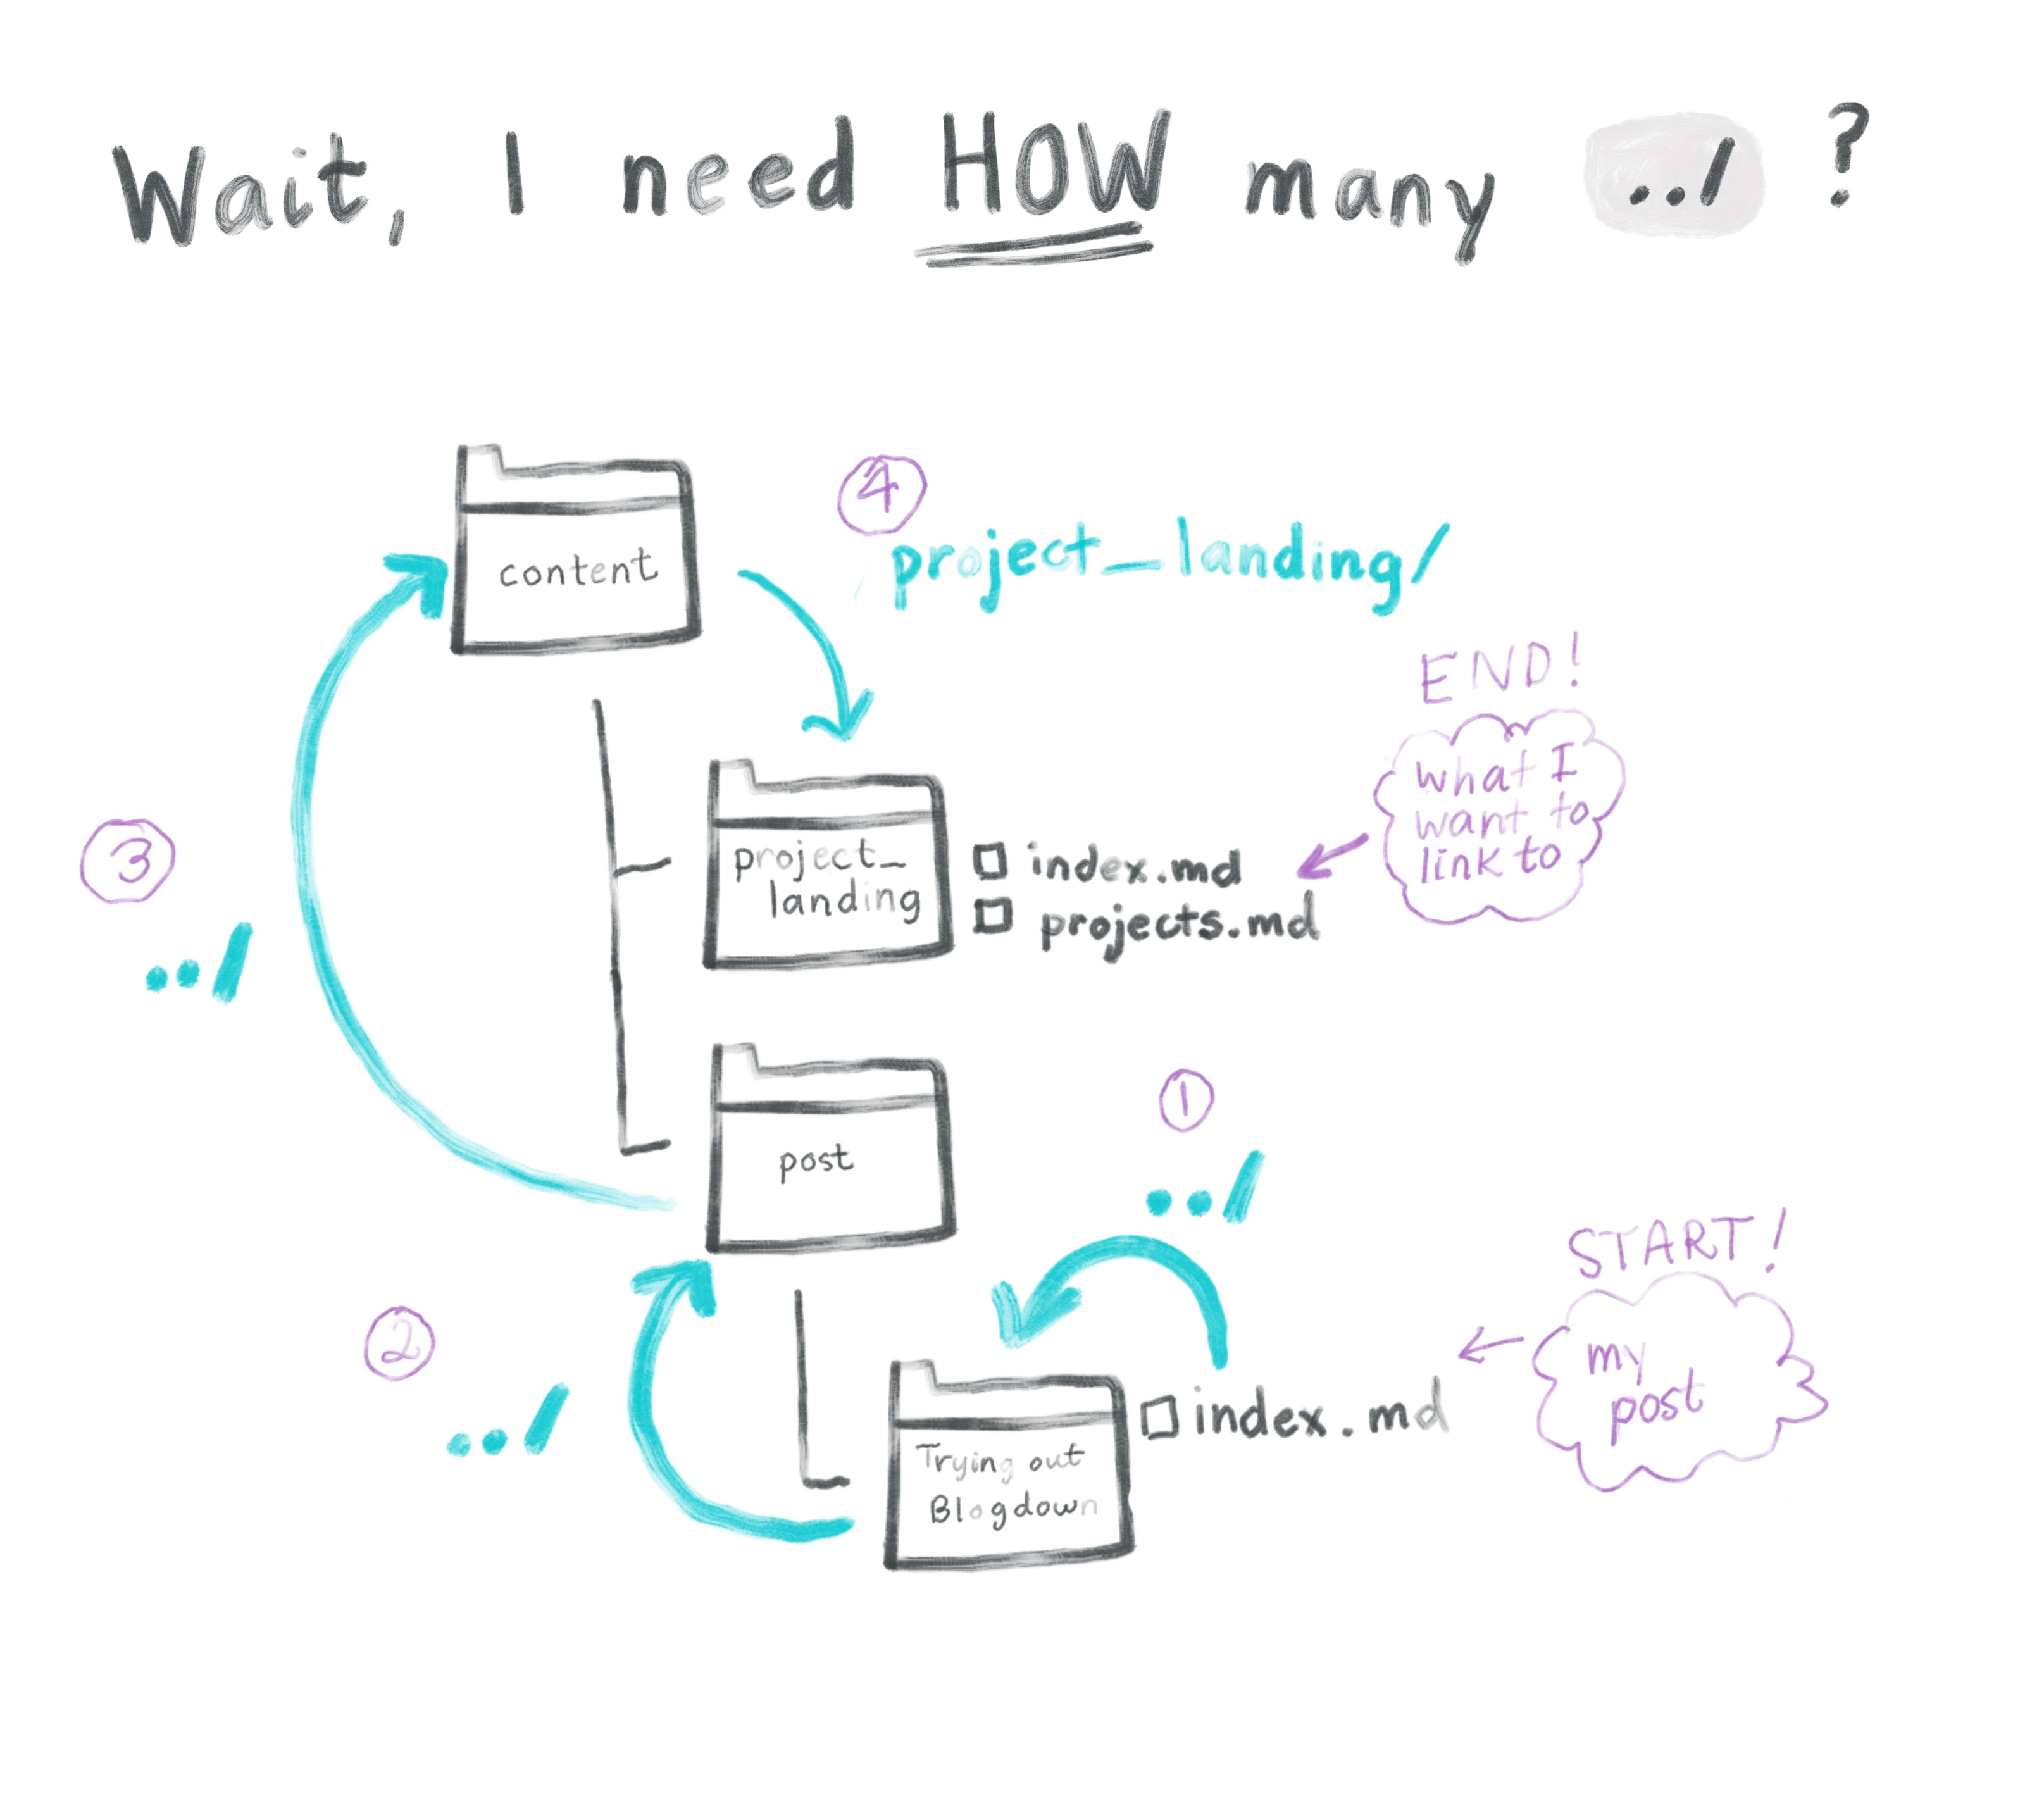 Wait, I need HOW many ../ ?
content
4
project_landing/
END!
what I
want to
link to
project_
landing
index.md
projects.md
3
../
post
1
../
START!
my
post
2
../
Trying out
Blogdown
index.md